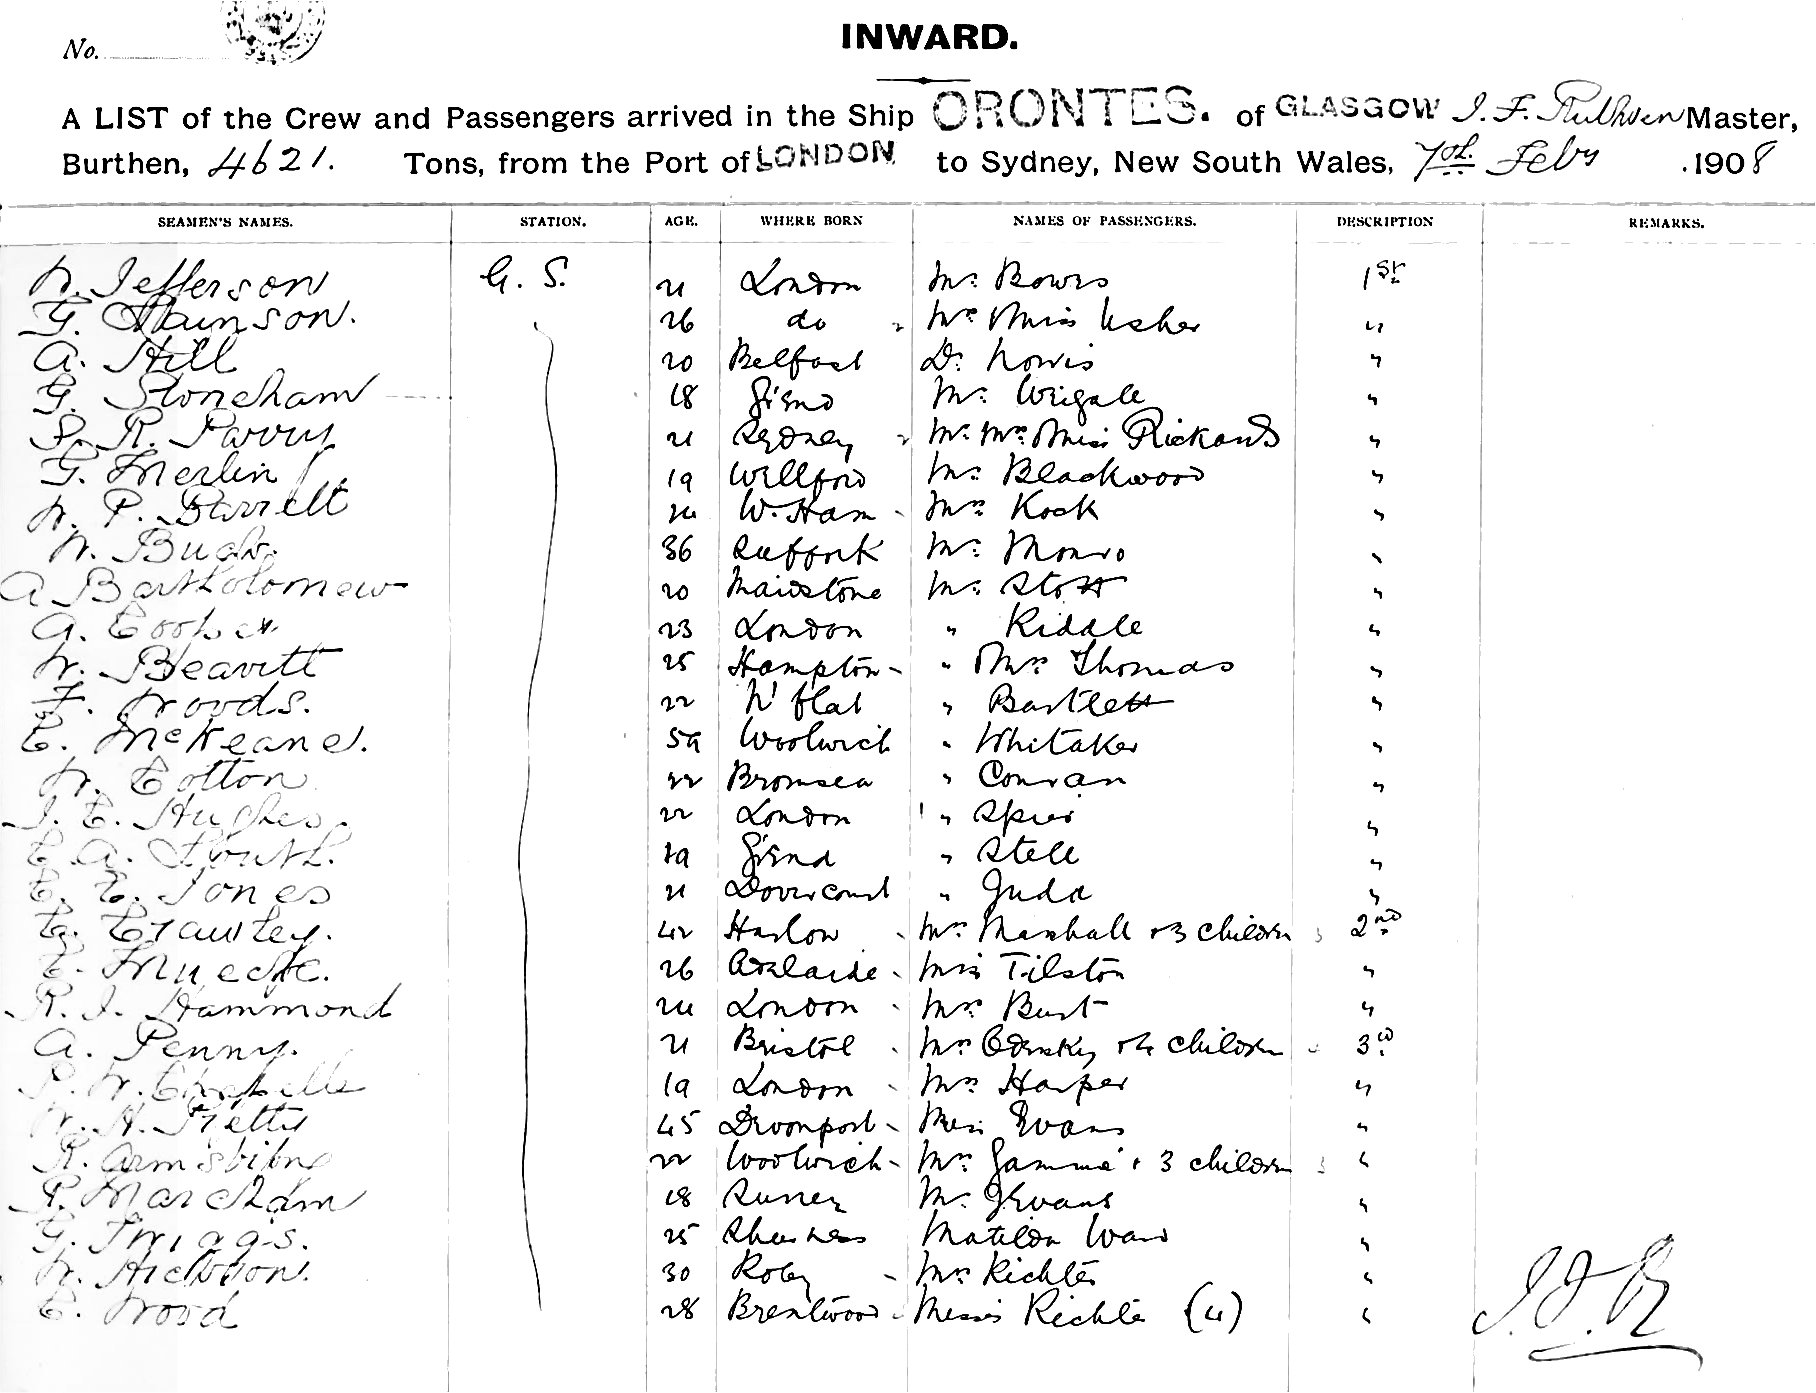 No.
INWARD.
A LIST of the Crew and Passengers arrived in the Ship ORONTES. of GLASGOW J. F. Ruthven Master,
Burthen, 4621. Tons, from the Port of LONDON to Sydney, New South Wales, 7th Feby .1908
SEAMEN'S NAMES. STATION. AGE. WHERE BORN NAMES OF PASSENGERS. DESCRIPTION REMARKS.
W. Jefferson G. S. 21 London Mr. Bowes 1st
G. 26 do Mr Miss Usher "
A. Hill 20 Belfast Dr. Norris "
G. Stoneham 18 G'send Mr. "
R. 21 Sydney Mr. Mrs Miss Rickards "
G. Merlin 19 Mr. Blackwood "
W. P. Barrett W. Ham Mrs Kock "
W. 36 Suffork Mr. Monro "
A Bartholomew 20 Maidstone Mr. Stott "
A. Cooper 23 London " Riddle "
W. Beavitt 25 Hampton " Mrs Thomas "
F. Woods. 22 N' flat " Bartlett "
C. McKeane. 59 Woolwich " Whitaker "
W. Cotton 22 " Conran "
J. E. Hughes. 22 London " Spier "
C. A. South. 19 G'send " Stell "
C. E. Jones 21 Dovercourt " Judd "
G. Crawley. 42 Harlow Mrs Marshall + 3 children 2nd
C. Muecke. 26 Adelaide Miss Tilston "
R. J. Hammond London Mrs Burt "
A. Penny. 21 Bristol Mrs + 4 children 3rd
W. Chapelle 19 London Mrs Harper "
W. H. Pretty 45 Devonport Miss Evans "
R. 22 Woolwich Mrs + 3 children "
Marcham 18 Surrey Mr. Evans "
G. Twiggs. 25 Sheerness Matilda Ward "
W. 30 Roby Mrs Richter "
C. Wood 28 Brentwood Misses Richter (4) "